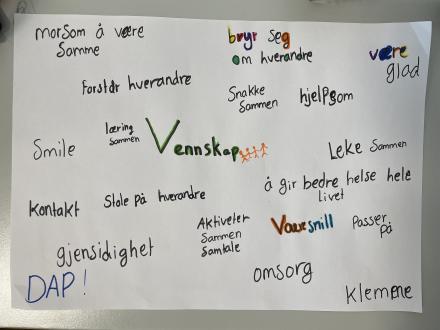 morsom å være
Samme
bryr seg
om hverandre
være
glad
Forstår hverandre
Snakke
Sammen
hjelpsom
læring
Sammen
Vennskap
Smile
Leke Sammen
å gir bedre helse hele
livet
Kontakt
Stole på hverandre
Aktiveter
Sammen
Samtale
Være snill
Passer
på
gjensidighet
omsorg
DAP!
klemene